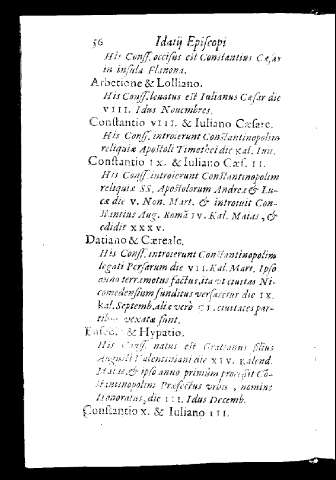 56 Idatij Episcopi
His Conss. occisus est Constantius Cæsar
in insula Flanona.
Arbetione & Lolliano.
His Conss. levatus est Iulianus Cæsar die
VIII. Idus Nouembres.
Constantio VIII. & Iuliano Cæsare.
His Conss. introierunt Constantinopolim
reliquiæ Apostoli Timothei die Kal. Iun.
Constantio IX. & Iuliano Cæs. II.
His Conss. introierunt Constantinopolim
reliquiæ SS. Apostolorum Andreæ & Lu-
cæ die V. Non. Mart. & introiuit Con-
stantius Aug. Romã IV. Kal. Maias, &
edidit XXXV.
Datiano & Cæreale.
His Conss. introierunt Constantinopolim
legati Persarum die VII. Kal. Mart. Ipso
anno terræmotus factus, ita vt ciuitas Ni-
comedensium funditus versaretur die IX.
Kal. Septemb. aliæ verò CL. ciuitates par-
vexatæ sunt.
& Hypatio.
His Conss. natus est Gratianus filius
Augusti Valentiniani die XIV. Kalend.
Maias, & ipso anno primùm processit Co-
stantinopolim Præfectus vrbis, nomine
Honoratus, die III. Idus Decemb.
Constantio X. & Iuliano III.